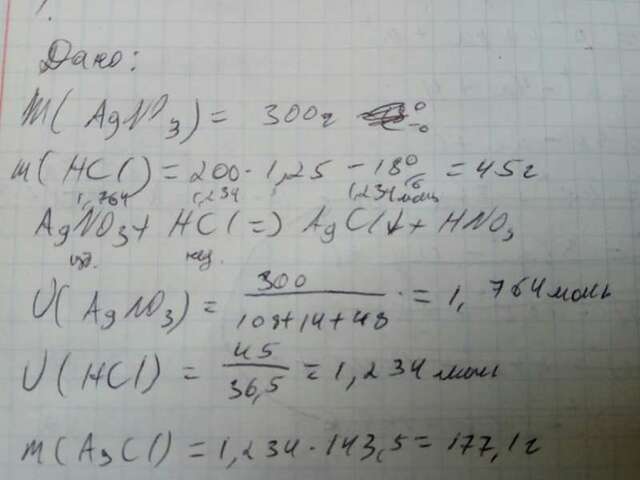 Дано:
m(AgNO3) = 300г
m(HCl) = 200·1,25 - 18% = 45г
1,764 1,234 1,234моль
AgNO3 + HCl (=) AgCl↓ + HNO3
изб. нед.
υ(AgNO3) = 300/(108+14+48) = 1,764моль
υ(HCl) = 45/36,5 = 1,234моль
m(AgCl) = 1,234·143,5 = 177,1г